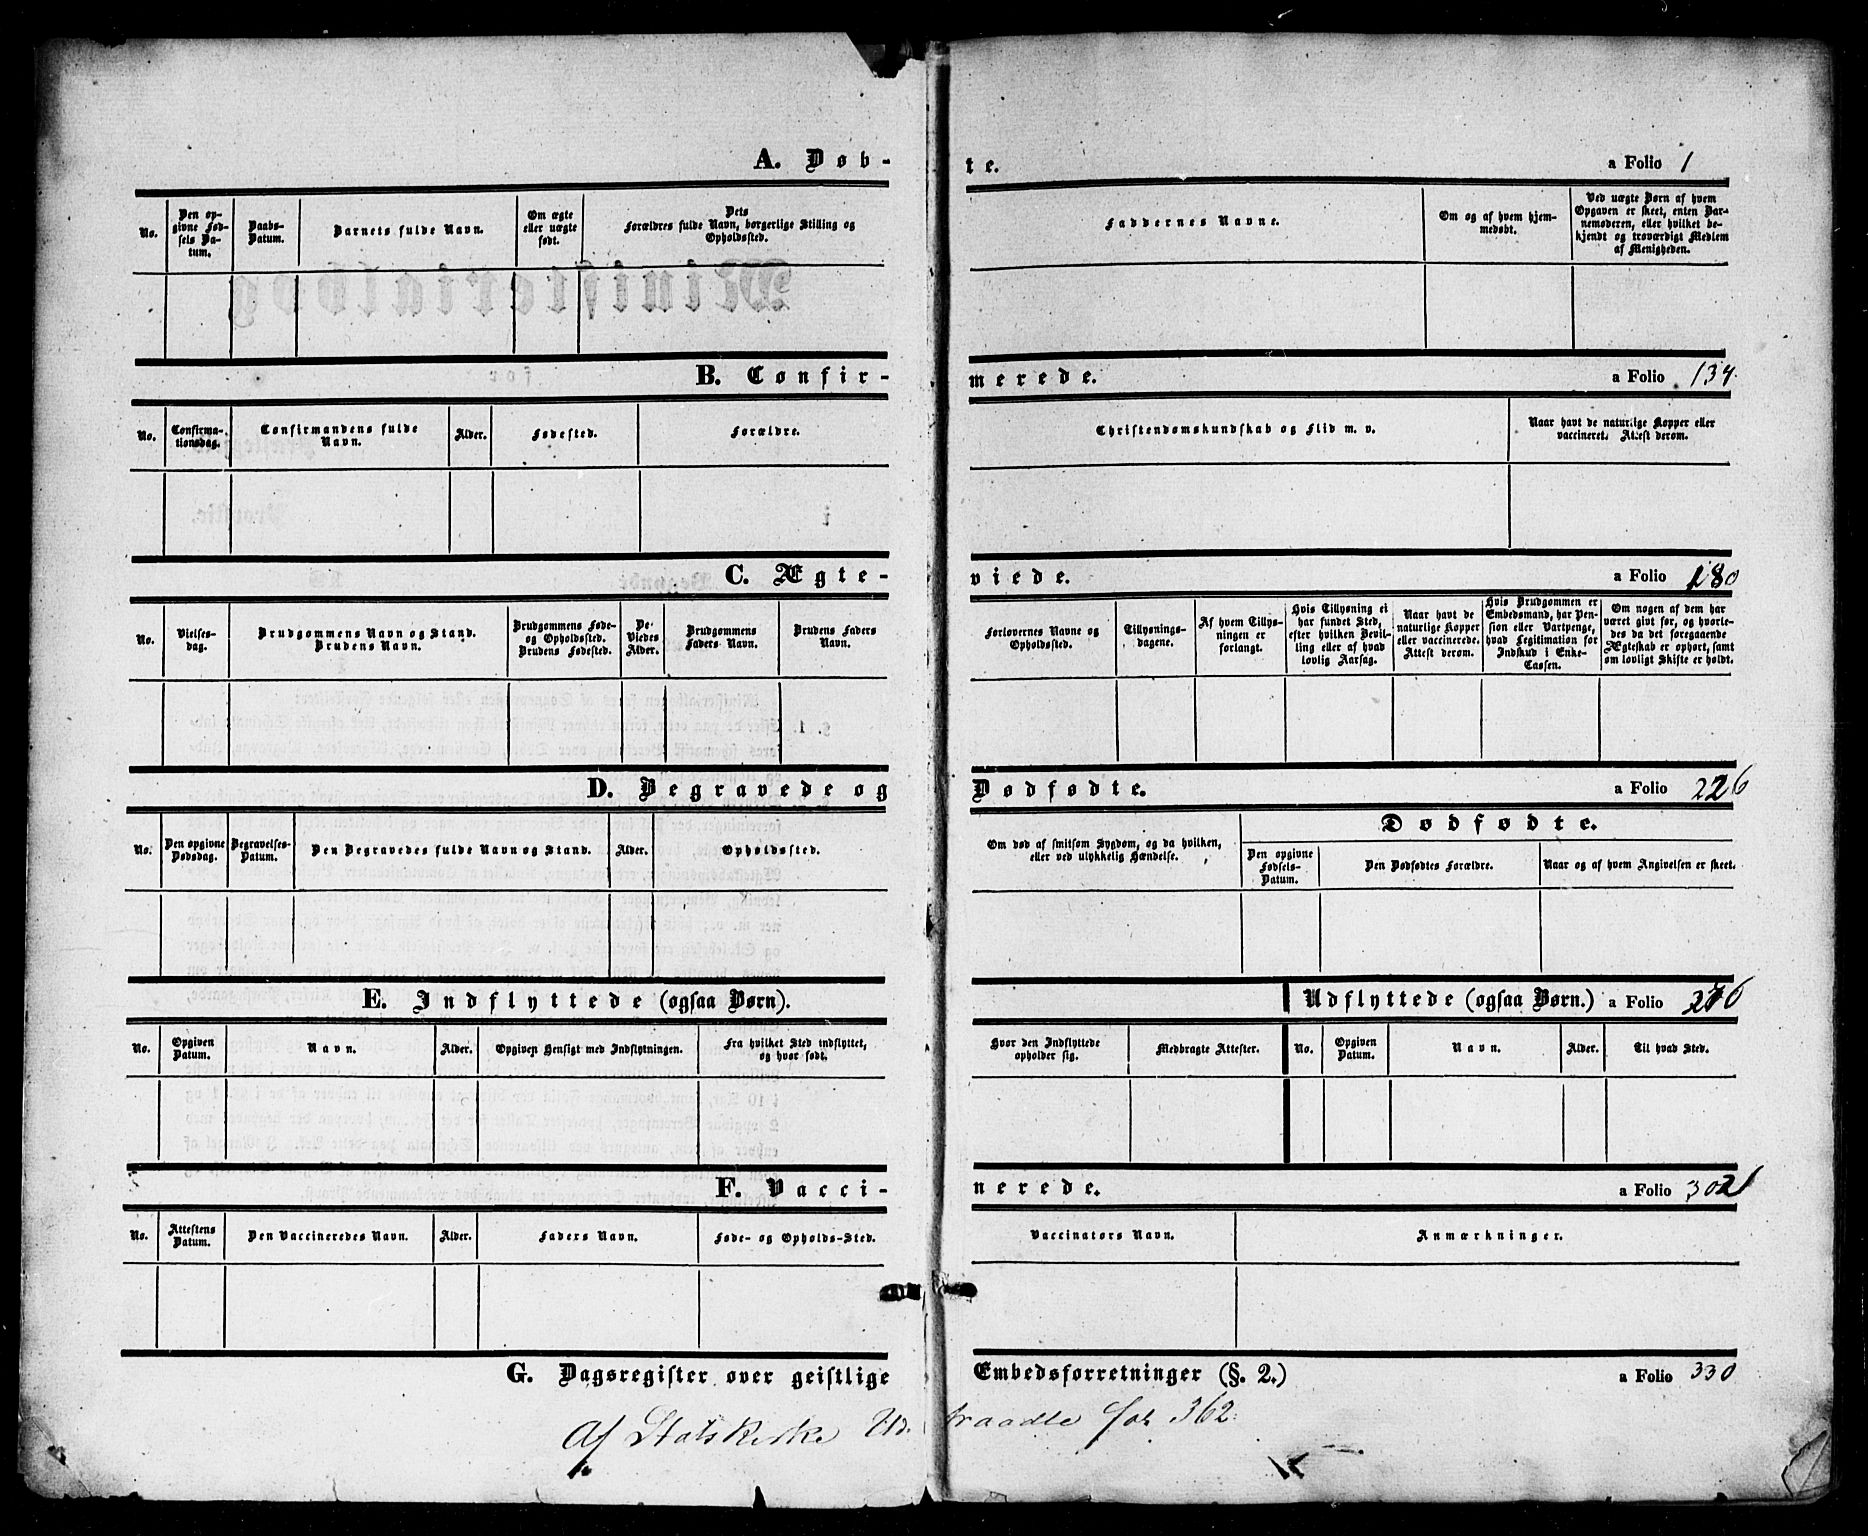 A. Døb-te. a Folio 1
No.
Den opgivne Fødsels Datum.
Daabs-Datum.
Barnets fulde Navn.
Om ægte eller uægte født.
Dets Forældres fulde Navn, borgerlige Stilling og Opholdssted.
Faddernes Navne.
Om og af hvem hjemmedøbt.
Ved uægte Børn af hvem Opgaven er skeet, enten Barnemoderen, eller hvilket bekjendt og troværdigt Medlem af Menigheden.
B. Confir-merede. a Folio 134.
No.
Confirmationsdag.
Confirmandens fulde Navn.
Alder.
Fødested.
Forældre.
Christendomskundskab og Flid m. v.
Naar havt de naturlige Kopper eller vaccineret. Attest derom.
C. Ægte-viede. a Folio 180
No.
Vielses-dag.
Brudgommens Navn og Stand. Brudens Navn.
Brudgommens Føde- og Opholdssted. Brudens Fødested.
De Viedes Alder.
Brudgommens Faders Navn.
Brudens Faders Navn.
Forlovernes Navne og Opholdssted.
Tillysnings-dagene.
Af hvem Tillysningen er forlangt.
Hvis Tillysning ei har fundet Sted, efter hvilken Bevilling eller af hvad lovlig Aarsag.
Naar havt de naturlige Kopper eller vaccinerede. Attest derom.
Hvis Brudgommen er Embedsmand, har Pension eller Vartpenge, hvad Legitimation for Indskud i Enke-Cassen.
Om nogen af dem har været givt før, og hvorledes da det foregaaende Ægteskab er ophørt, samt om lovligt Skifte er holdt.
D. Begravede og Dødfødte. a Folio 226
No.
Den opgivne Dødsdag.
Begravelses-Datum.
Den Begravedes fulde Navn og Stand.
Alder.
Opholdssted.
Om død af smitsom Sygdom, og da hvilken, eller ved ulykkelig Hændelse.
Dødfødte.
Den opgivne Fødsels-Datum.
Den Dødfødtes Forældre.
Naar og af hvem Angivelsen er skeet.
E. Indflyttede (ogsaa Børn). Udflyttede (ogsaa Børn.) a Folio 276
No.
Opgiven Datum.
Navn.
Alder.
Opgiven Hensigt med Indflytningen.
Fra hvilket Sted indflyttet, og hvor født.
Hvor den Indflyttede opholder sig.
Medbragte Attester.
No.
Opgiven Datum.
Navn.
Alder.
Til hvad Sted.
F. Vacci-nerede. a Folio
No.
Attestens Datum.
Den Vaccineredes Navn.
Alder.
Faders Navn.
Føde- og Opholds-Sted.
Vaccinators Navn.
Anmærkninger.
G. Dagsregister over geistlige Embedsforretninger (§. 2.) a Folio 330
Af Statskirke Udtraadte fol 362.